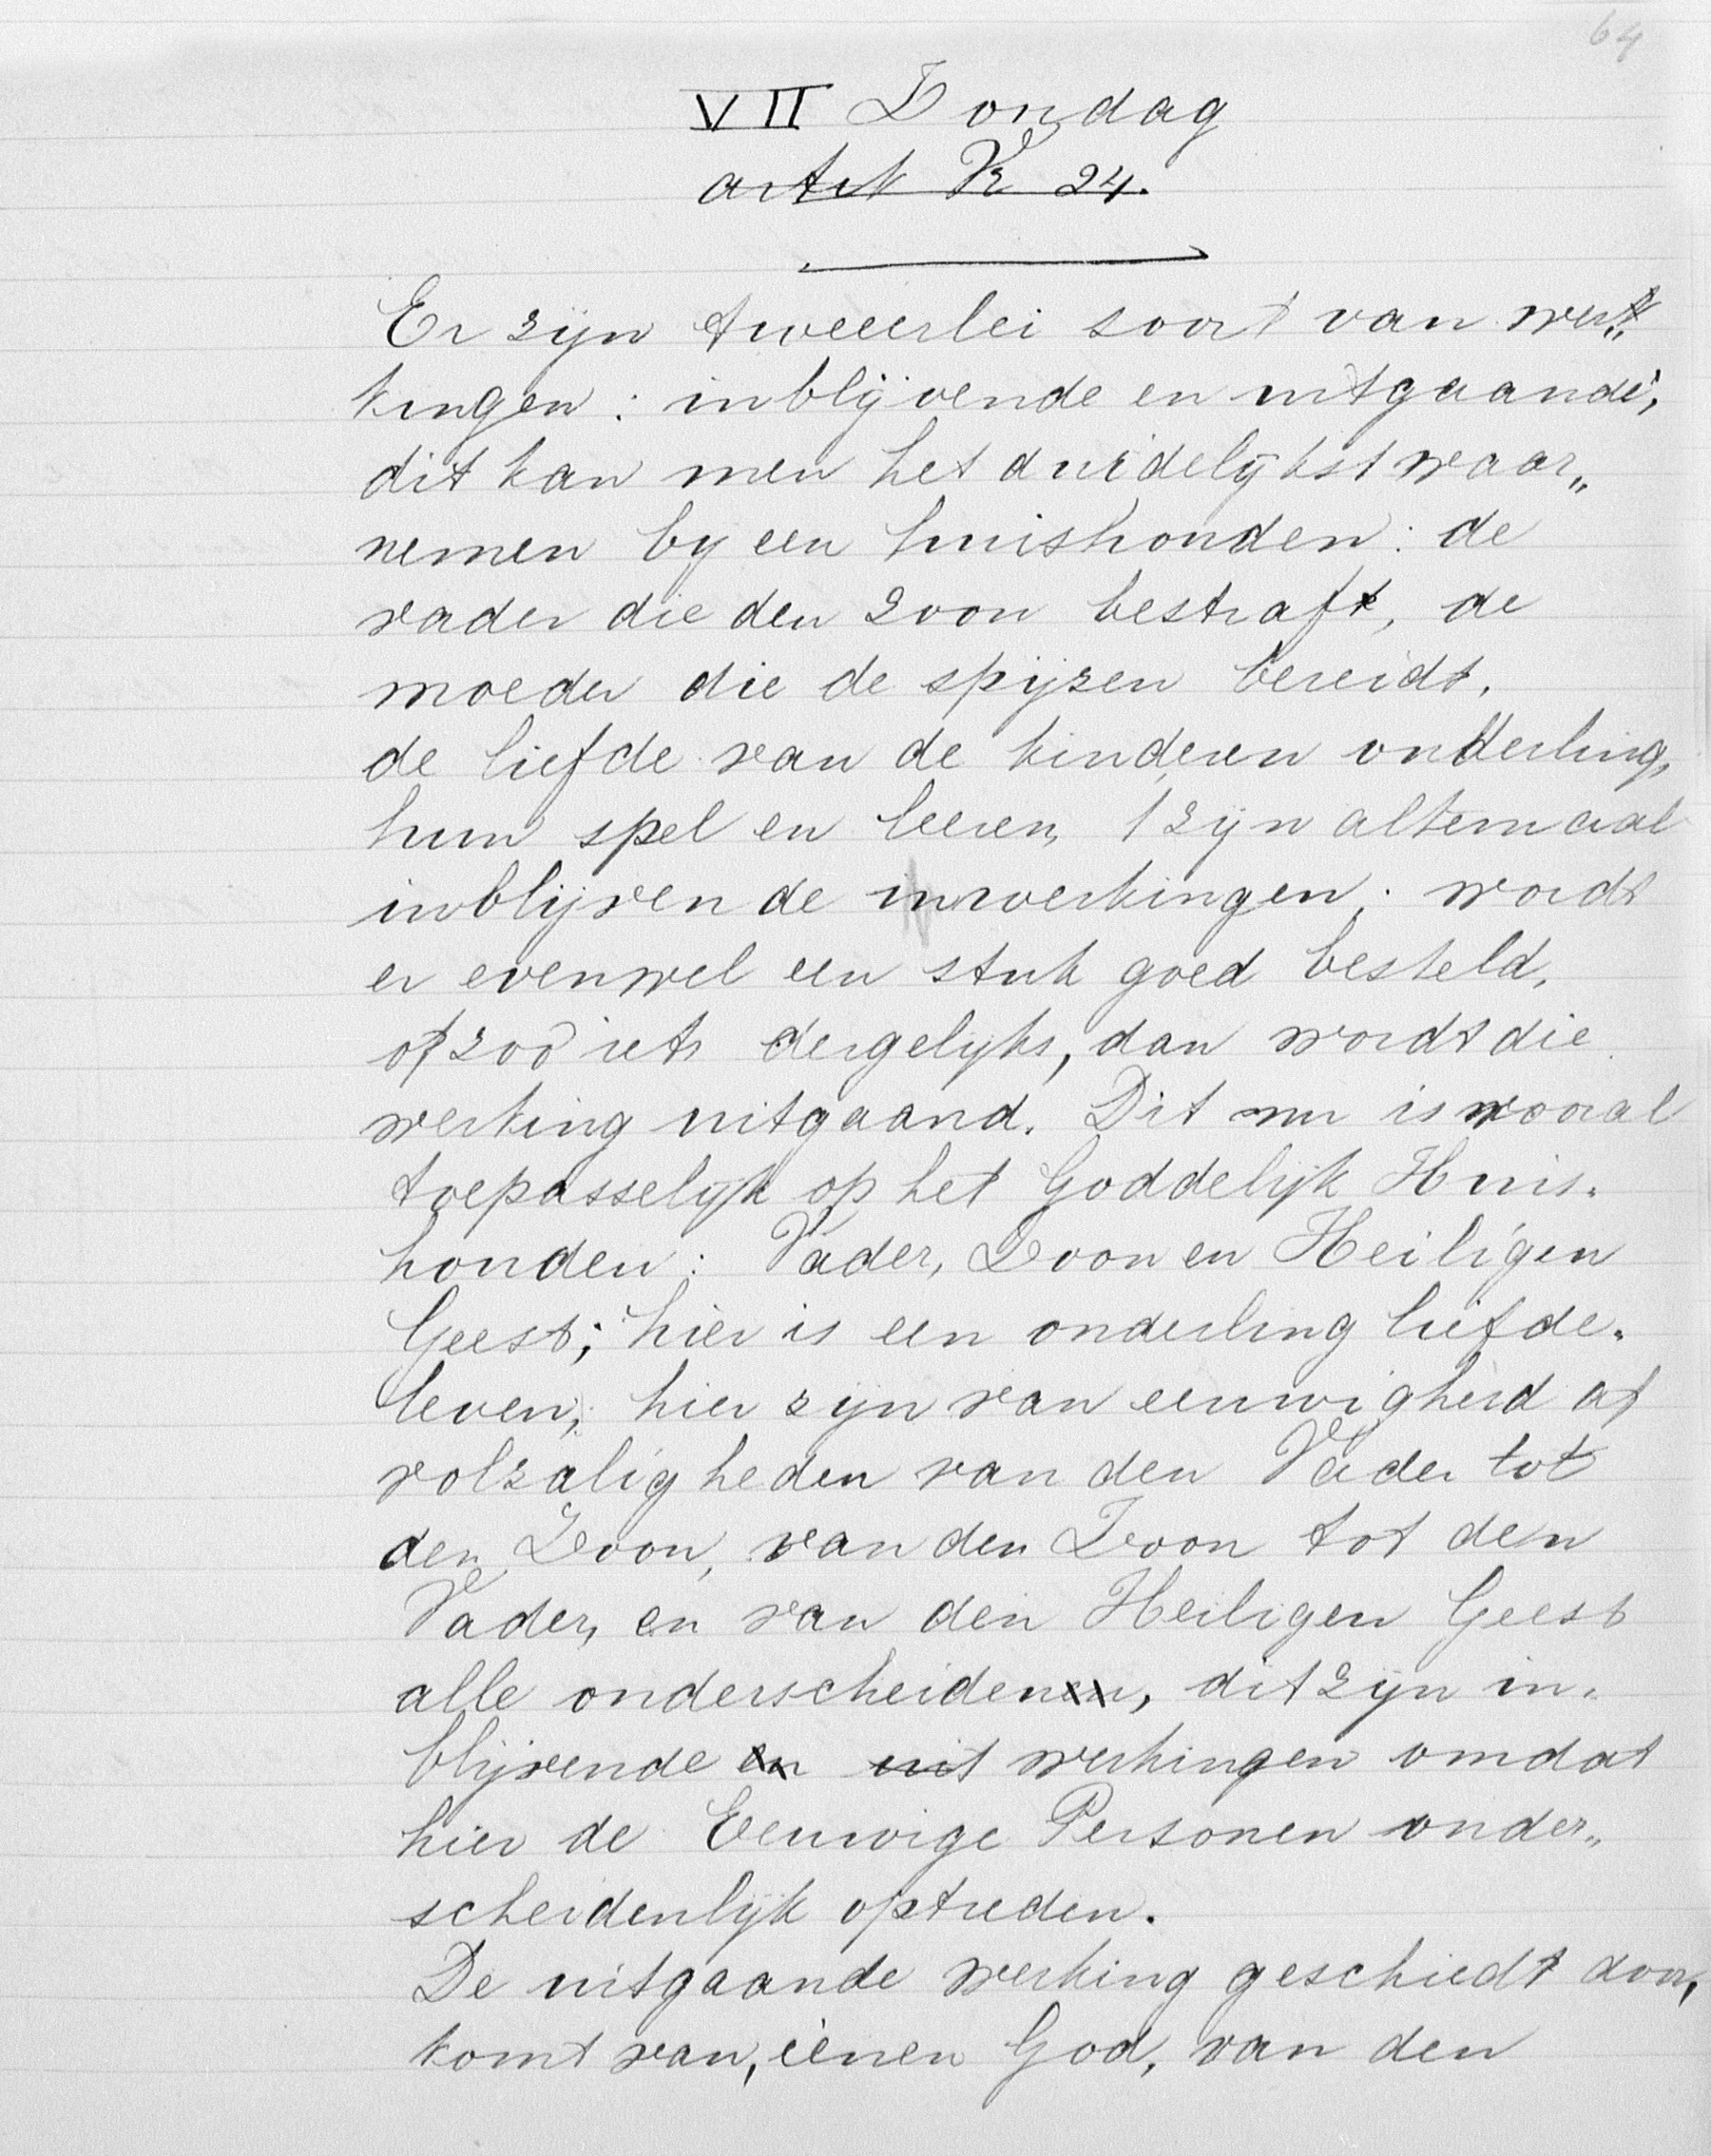 64
VII Zondag
artik Vr 24.
Er zijn tweeerlei soort van wer„
kingen: inblijvende en uitgaande;
dit kan men het duidelijkst waar„
nemen by een huishouden: de
vader die den zoon bestraft, de
moeder die de spijzen bereidt,
de liefde van de kinderen onderling,
hun spel en leeren, zijn altemaal
inblijvende inwerkingen; wordt
er evenwel een stuk goed besteld,
of zoo iets dergelijks, dan wordt die
werking uitgaand. Dit nu is vooral
toepasselijk op het Goddelijk Huis-
houden: Vader, Zoon en Heiligen
Geest; hier is een onderling liefde-
leven; hier zijn van eeuwigheid af
volzaligheden van den Vader tot
den Zoon, van den Zoon tot den
Vader, en van den Heiligen Geest
alle onderscheiden, dit zijn in-
blijvende en uit werkingen omdat
hier de Eeuwige Personen onder„
scheidenlijk optreden.
De uitgaande werking geschiedt door,
komt van, éénen God, van den